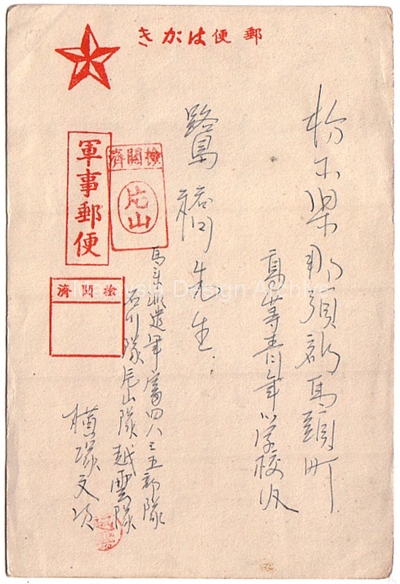 郵便はがき
栃木県那須郡馬頭町
高等青年小学校
先生
馬来派遣軍富四八三五部隊
石川隊片山隊越雲隊
横塚文次
検閲済
片山
軍事郵便
検閲済
Design Archive